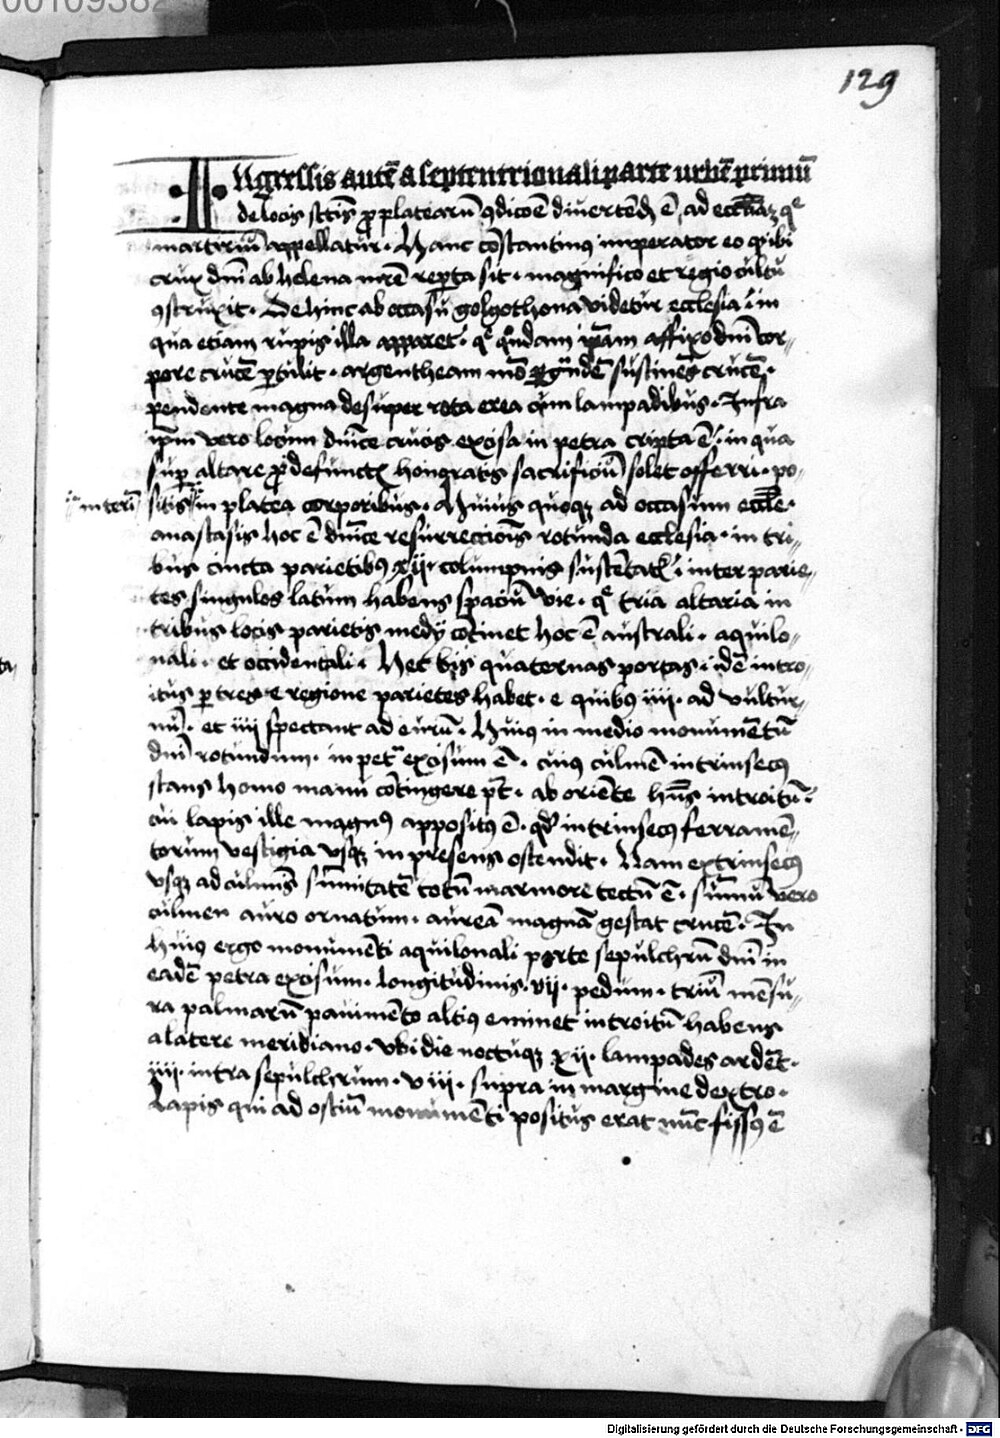 129
Ingressis autē a septentrionali parte urbē primū
de locis sctīs p̄ platearū ꝯdicoē divertēdū ē ad ecclīaꝫ q̄
martiriū appellatur. Hanc cōstantinus imperator eo qd ibi
crux dnī ab helena mr̄e reperta sit. magnifico et regio cultu
ꝯstruxit. Dehinc ab occasu golgothona videtur ecclesia in
qua etiam rupis illa apparet. q̄ quōdam ip̄am affixo dnī cor-
pore crucē ꝑtulit. argentheam mō ꝑgrādē sustinēs crucē.
pendente magna desuper rota erea cum lampadibus. Infra
ip̄m vero locum dnīce crucis excisa in petra cripta ē. in qua
suꝑ altare ꝓ defunctis honoratis sacrificiū solet offerri. po-
interī
sitis in platea corporibus. Huius quoqꝫ ad occasum eccl̄ie.
anastasis hoc ē dnīce resurrecciōis rotunda ecclesia. in tri-
bus cincta parietibꝯ xij. columpnis sustētatr̄ inter parie-
tes singulos latum habens spaciū vie. q̄ tria altaria in
tribus locis parietis medij cōtinet hoc ē australi. aquilo-
nali. et occidentali. Hec bis quaternas portas. idē intro-
itus ꝑ tres e regione parietes habet. e quibꝯ iiij. ad vultur-
nū. et iiij spectant ad eurū. Huiꝯ in medio monumētū
dnī rotundum. in petra excisum ē. cuiꝯ culmē intrinsecꝯ
stans homo manu cōtingere pt̄. ab oriēte hn̄s introitū.
cui lapis ille magnꝯ appositꝯ ē. qd̄ intrinsecꝯ ferramē-
torum vestigia vsqꝫ in presens ostendit. Nam extrinsecꝯ
vsqꝫ ad culmīs sūmitatē totū marmore tectū ē. sūmū vero
culmen auro ornatum. aureā magnā gestat crucē. In
huiꝯ ergo monumēti aquilonali parte sepulchrū dnī in
eadē petra excisum. longitudinis. vij. pedum. triū mēsu-
ra palmarū pauimēto altiꝯ eminet introitū habens
a latere meridiano. vbi die noctuqꝫ xij. lampades ardēt.
iiij. intra sepulchrum. viij. supra in margine dextro.
Lapis qui ad ostiū monumēti positus erat nūc fissꝯ ē
Digitalisierung gefördert durch die Deutsche Forschungsgemeinschaft - DFG